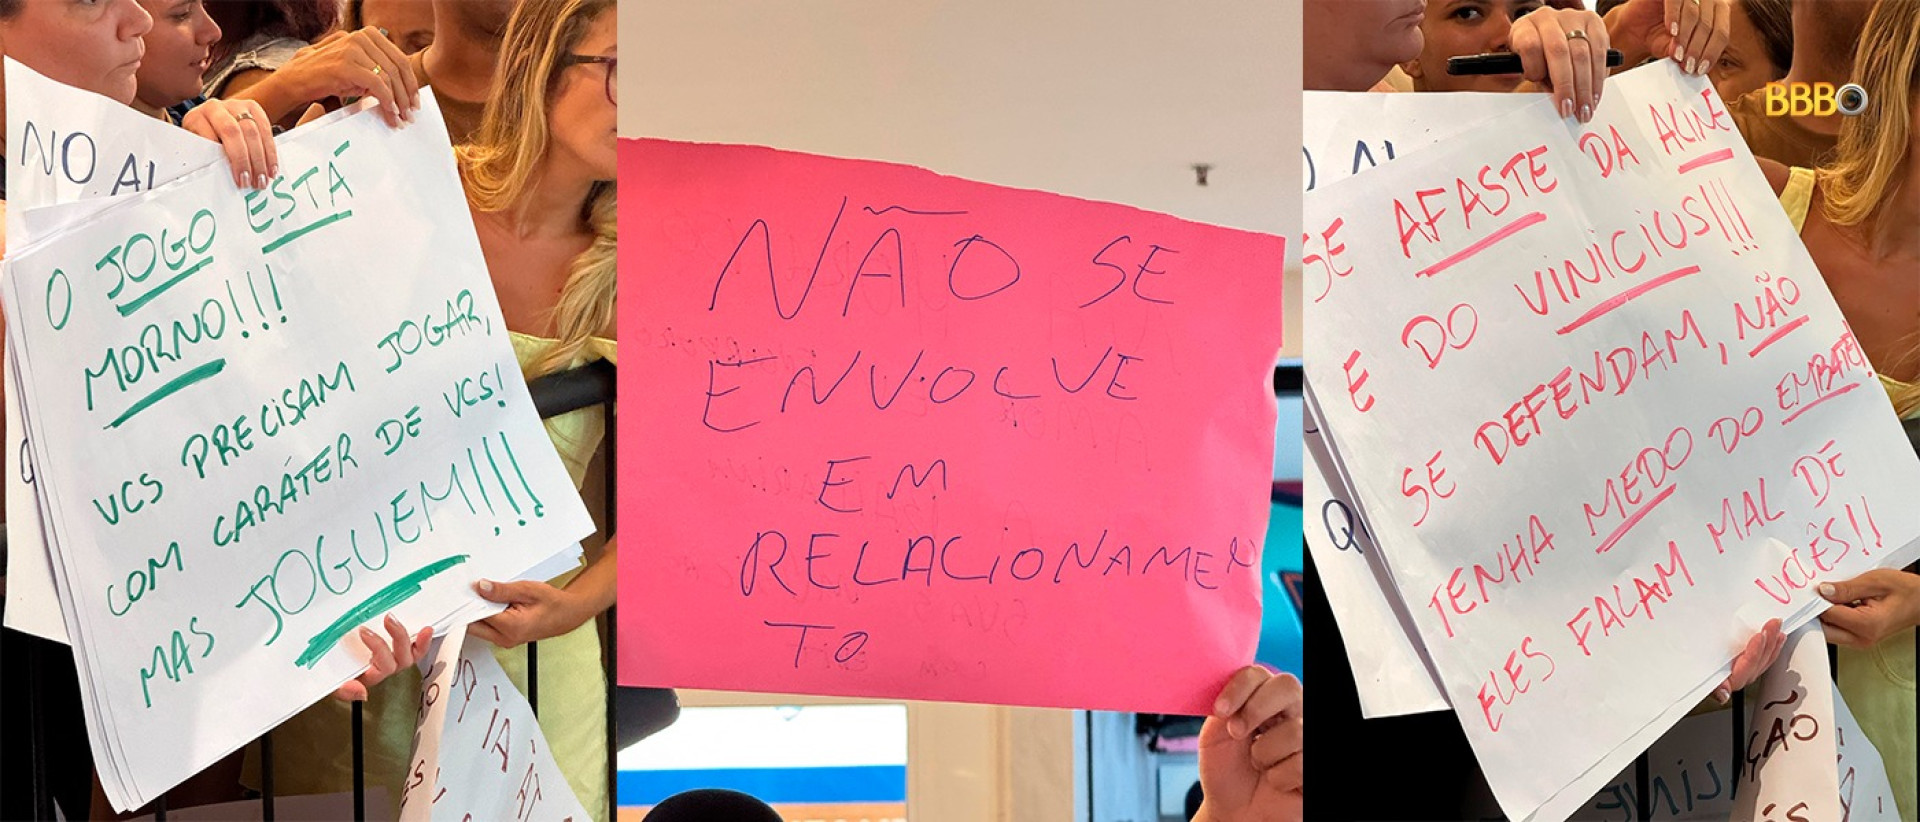 NO AL
O JOGO ESTÁ
MORNO!!!
VCS PRECISAM JOGAR,
COM CARÁTER DE VCS!
MAS JOGUEM!!!
NÃO SE
ENVOLVE
EM
RELACIONAMEN
TO
BBBO
SE AFASTE DA ALINE
E DO VINICIUS!!!
SE DEFENDAM, NÃO
TENHA MEDO DO EMBATE!
ELES FALAM MAL DE
VOCÊS!!
ÇÃO